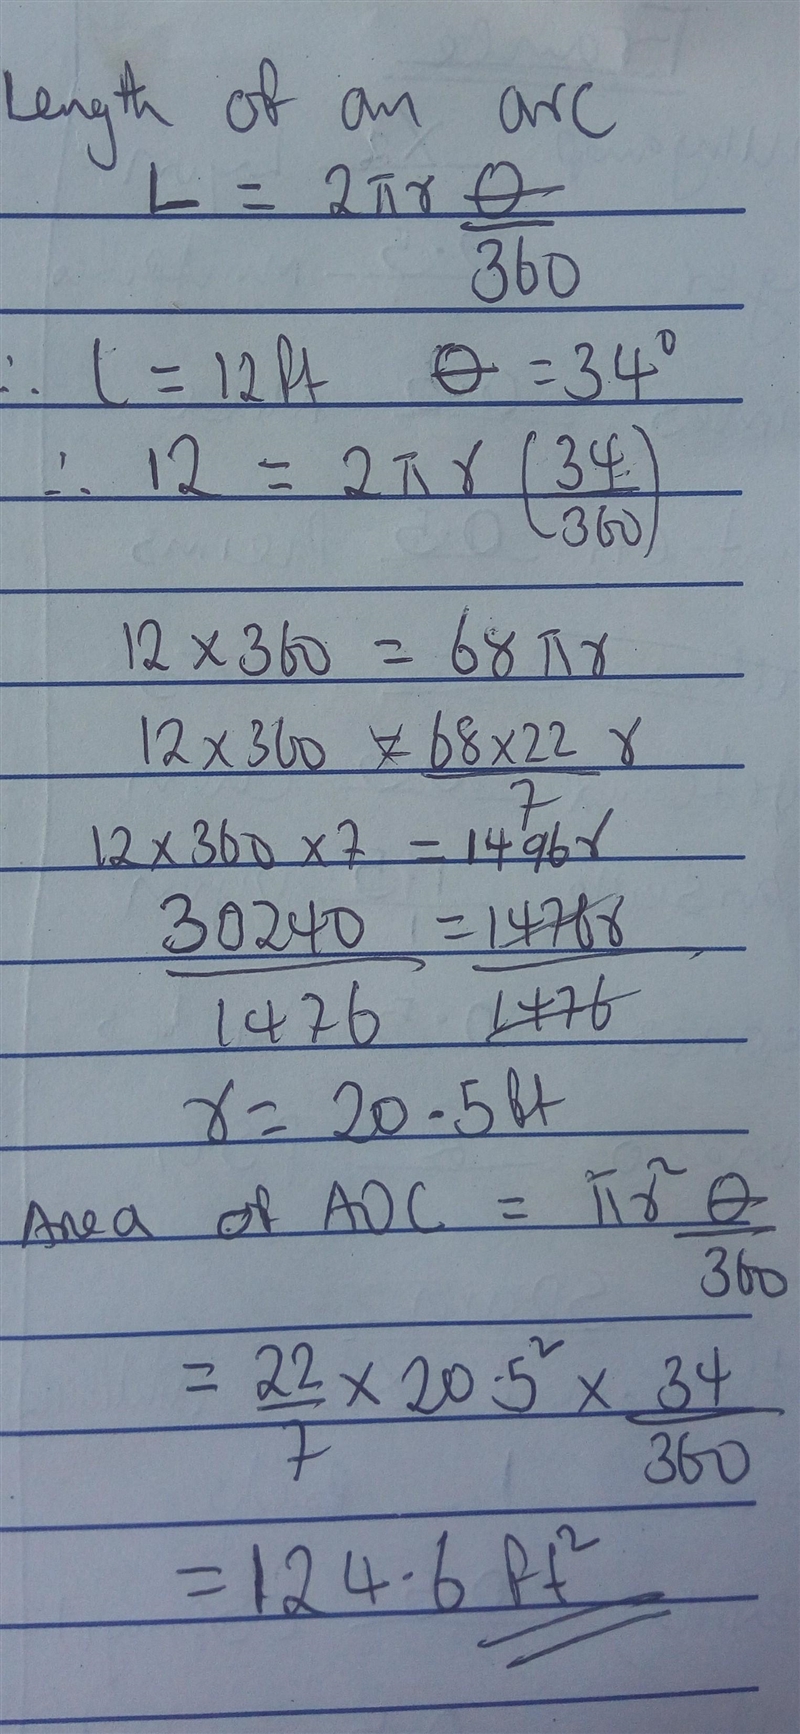 Length of an arc
L = 2πr θ/360
∴ l = 12ft θ = 34°
∴ 12 = 2πr (34/360)
12 × 360 = 68πr
12 × 360 = 68×22/7 r
12 × 360 × 7 = 1496r
30240/1476 = 1476r/1476
r = 20.5ft
Area of AOC = πr² θ/360
= 22/7 × 20.5² × 34/360
= 124.6 ft²